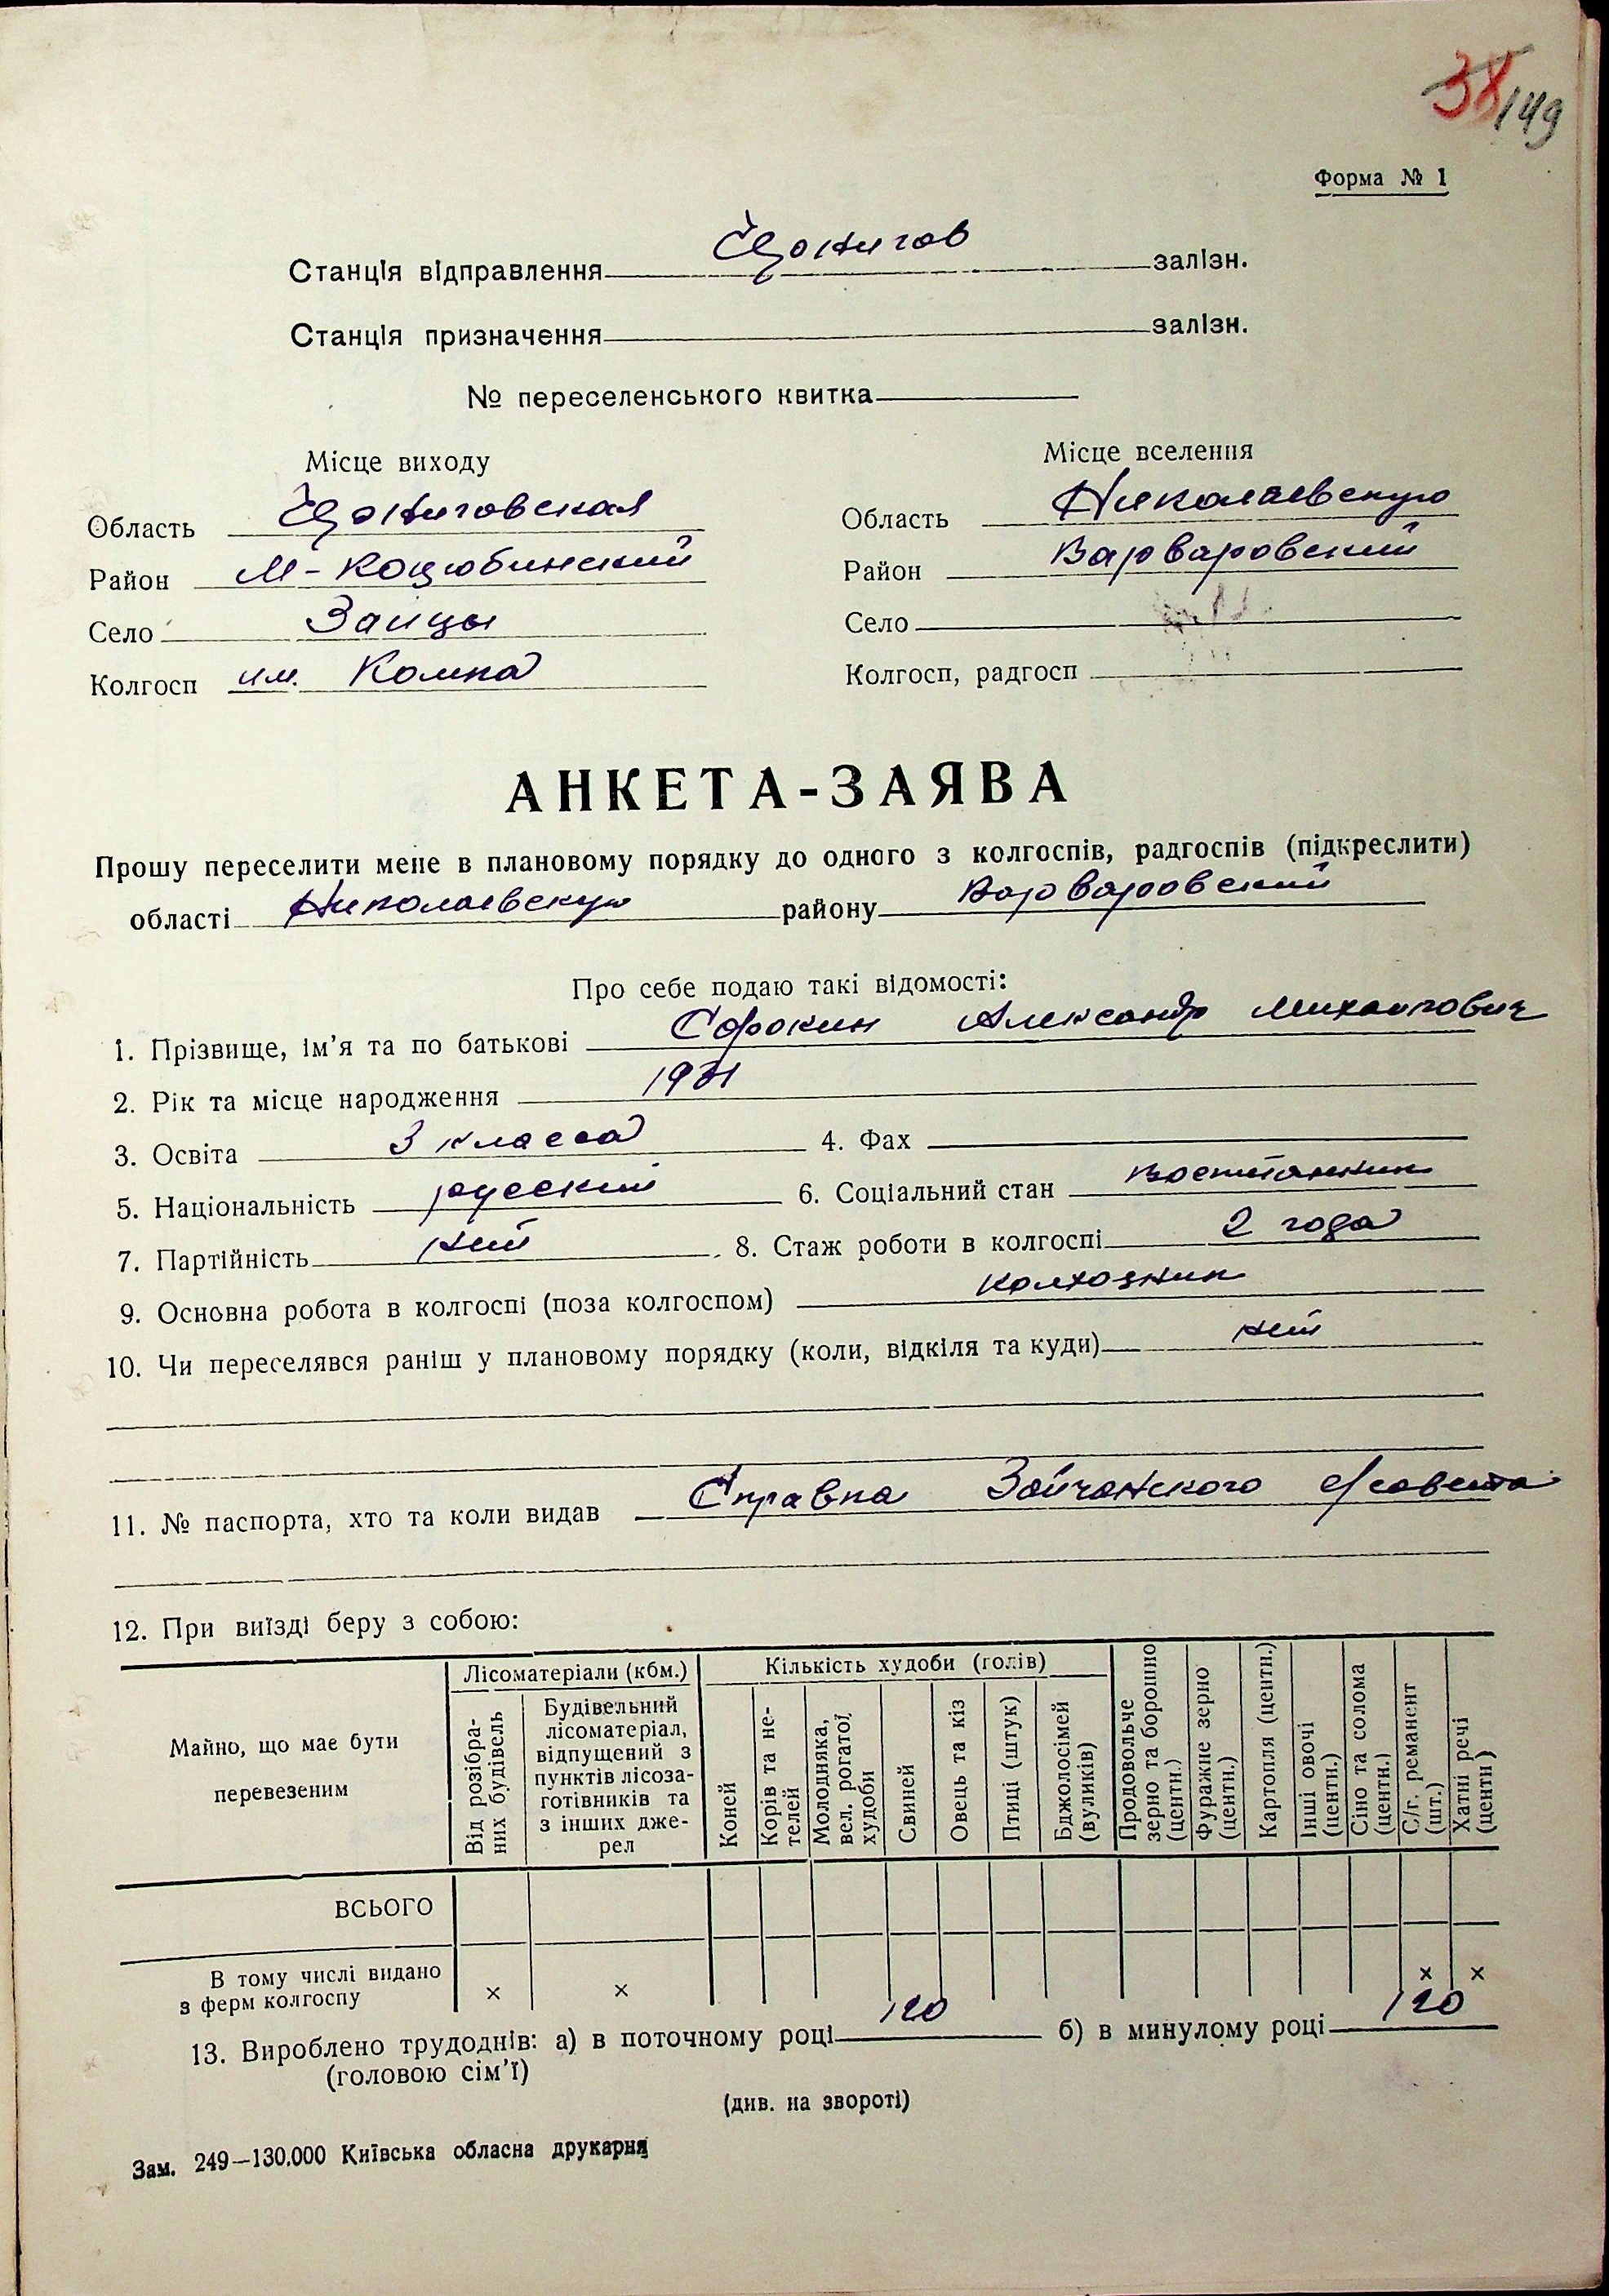 38/149
Форма № 1
Станція відправлення Чернигов залізн.
Станція призначення залізн.
№ переселенського квитка
Місце виходу Місце вселення
Область Черниговская Область Николаевскую
Район М-Коцюбинский Район Варваровский
Село Зайцы Село
Колгосп им. Колгосп, радгосп
АНКЕТА-ЗАЯВА
Прошу переселити мене в плановому порядку до одного з колгоспів, радгоспів (підкреслити)
області Николаевскую району Варваровский
Про себе подаю такі відомості:
1. Прізвище, ім’я та по батькові Сорокин Александр Михайлович
2. Рік та місце народження 1931
3. Освіта 3 класса 4. Фах
5. Національність русский 6. Соціальний стан
7. Партійність нет 8. Стаж роботи в колгоспі 2 года
9. Основна робота в колгоспі (поза колгоспом) колхозник
10. Чи переселявся раніш у плановому порядку (коли, відкіля та куди) нет
11. № паспорта, хто та коли видав Справка Зайчанского с/совета
12. При виїзді беру з собою:
Майно, що має бути перевезеним
Лісоматеріали (кбм.)
Від розібра-
них будівель
Будівельний
лісоматеріал,
відпущений з
пунктів лісоза-
готівників та
з інших дже-
рел
Кількість худоби (голів)
Коней
Корів та не-
телей
Молодняка,
вел. рогатої
худоби
Свиней
Овець та кіз
Птиці (штук)
Бджолосімей
(вуликів)
Продовольче
зерно та борошно
(центн.)
Фуражне зерно
(центн.)
Картопля (центн.)
Інші овочі
(центн.)
Сіно та солома
(центн.)
С/г. реманент
(шт.)
Хатні речі
(центн)
ВСЬОГО
В тому числі видано
з ферм колгоспу × × × ×
13. Вироблено трудоднів: а) в поточному році 120 б) в минулому році 120
(головою сім’ї)
(див. на звороті)
Зам. 249—130.000 Київська обласна друкарня